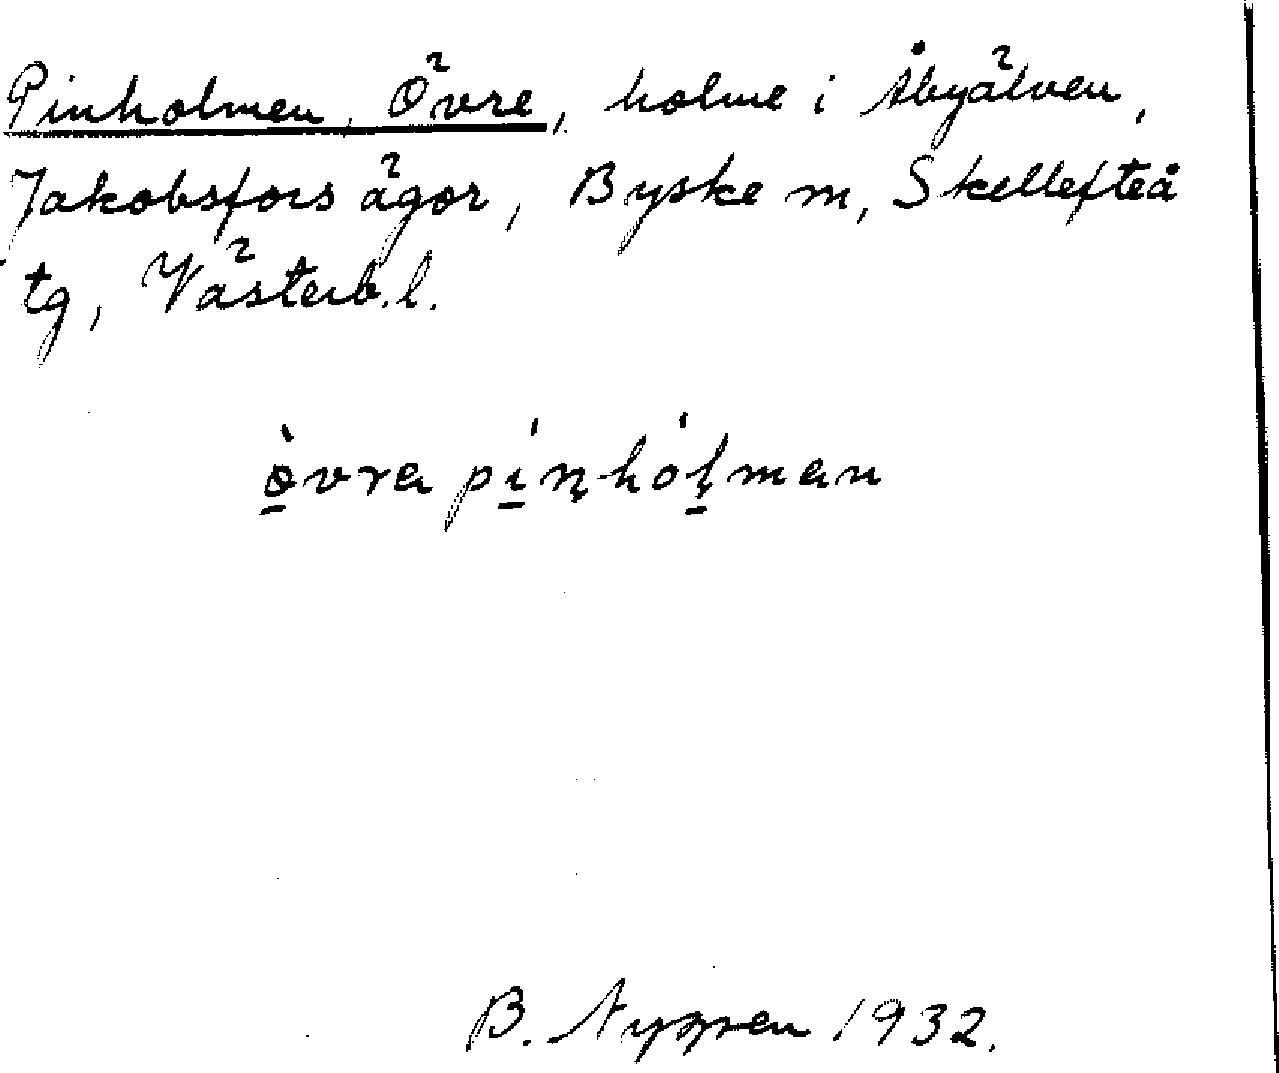 Pinholmen, Övre, holme i Åbyälven,
Jakobsfors ägor, Byske sn, Skellefteå
tg, Västerb.l.
ò̱vra pí̱ṇhó̱ḷman
B. 1932.